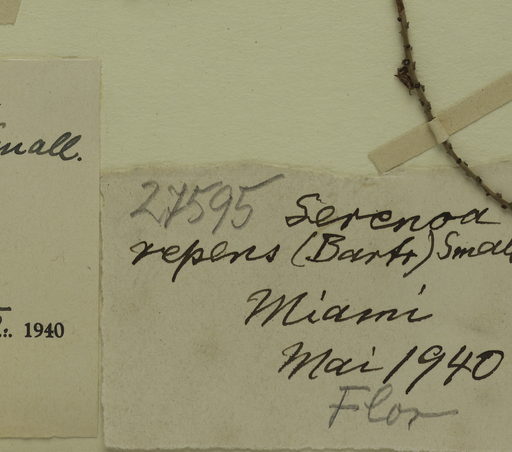 Small.
1940
27595 Serenoa
repens (Bartr) Small
Miami
Mai 1940
Flor